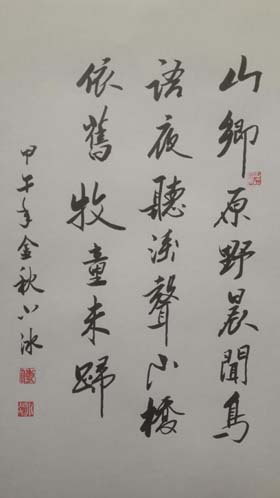 山鄉原野晨聞鳥
語夜聽溪聲小橋
依舊牧童未歸
甲午年金秋小冰